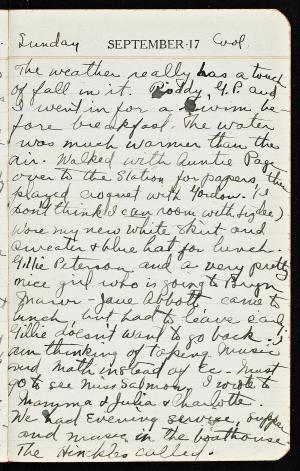 Sunday SEPTEMBER-17 Cool.
The weather really has a touch
of fall in it. Roddy, G.P. and
I went in for a swim be-
fore breakfast. The water
was much warmer than the
air. Walked with Auntie Page
over to the Station for papers, then
played croquet with Gordon. (I
don't think I can room with)
Wore my new white skirt and
sweater & blue hat for lunch.
Gillie Peterson and a very pretty
nice girl who is going to Bryn
Mawr - Jane Abbott - came to
lunch, but had to leave early.
Gillie doesn't want to go back. I
am thinking of taking Music
and Math instead of Ec. Must
go to see Miss Salmon. I wrote to
Mamma & Julia & Charlotte.
We had Evening service, supper
and music in the boathouse.
The Hinkles called.